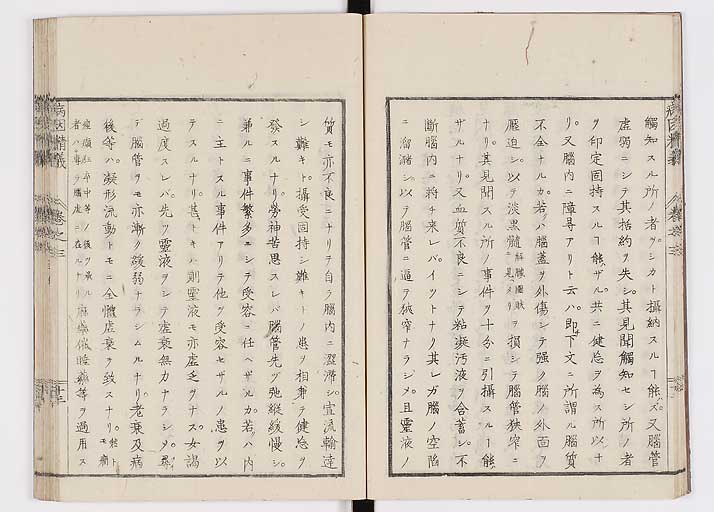 觸知スル所ノ者ヲシカト攝納スルヿ能ハズ又腦管
虚弱ニシテ其括約ヲ失シ其見聞觸知セシ所ノ者
ヲ印定固持スルヿ能ザル共ニ健忘ヲ為ス所以ナ
リ又腦内ニ障㝵アリト云ハ即下文ニ所謂ル腦質
不全ナルカ若ハ腦蓋ヲ外傷シテ強ク腦ノ外面ヲ
壓迫シ以テ淡黒髓 解臓圖賦ニ見ヘタリ ヲ損シテ腦管狭窄ニ
ナリ其見聞スル所ノ事件ヲ十分ニ引攝スルヿ能
ザルナリ又血質不良ニシテ粘凝汚液ヲ含蓄シ不
斷腦内ニ將チ来レバイツトナク其レガ腦ノ空陷
ニ溜瀦シ以テ腦管ニ逼テ狭窄ナラシメ且靈液ノ
質モ亦不良ニナリテ自ラ腦内ニ澀滞シ宣流輸達
シ難キト攝受固持シ難キトノ患ヲ相兼テ健忘ヲ
發スルナリ勞神苦思スレバ腦管先ヅ弛縦緩慢シ
兼ルニ事件繁多ニシテ受容ニ任ヘザルカ若ハ内
ニ主トスル事件アリテ他ヲ受容セザルノ患ヲ以
テスルナリ甚トキハ則靈液モ亦虚乏ヲナス女謁
過度スレバ先ヅ靈液ヲシテ虚衰無力ナラシメ尋
デ腦管ヲモ亦漸ク緩弱ナラシムルナリ老衰及病
後等ハ凝形流動トモニ全體虚衰ヲ致スナリ 然トモ癇
痙癲狂卒中等ノ後ヲ承ル者ハ專ラ腦虚ニ在ルナリ 麻藥催睡藥等ヲ過用ス
病因精義
卷之三